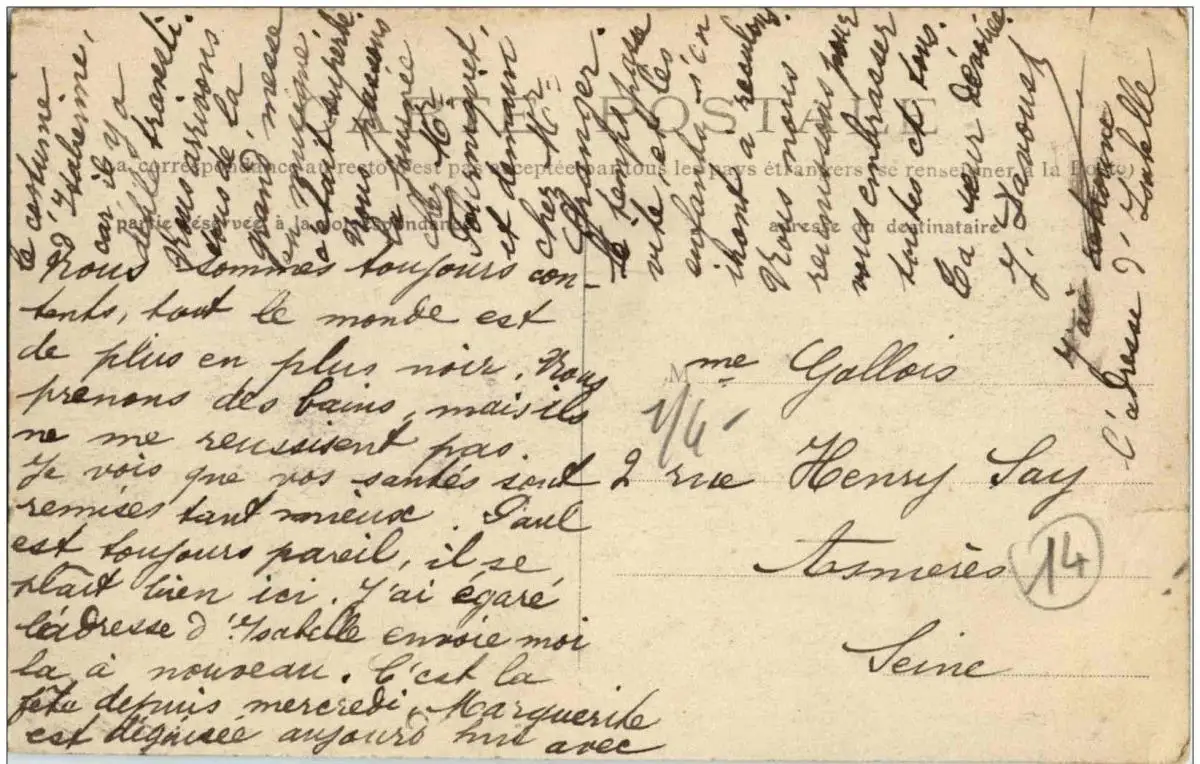 CARTE POSTALE
La correspondance au recto n'est pas acceptée par tous les pays étrangers (se renseigner à la Poste)
partie réservée à la correspondance
adresse du destinataire
Nous sommes toujours con-
tents, tout le monde est
de plus en plus noir. Nous
prenons des bains, mais ils
ne me reussisent pas.
Je vois que vos santés sont
remises tant mieux. Paul
est toujours pareil, il se
plaît bien ici. J'ai égaré
l'adresse d'Ysabelle envoie moi
la à nouveau. C'est la
fête depuis mercredi, Marguerite
est déguisée aujourd'hui avec
le costume
car il y a
défilé travesti.
Nous arrivons
tous de la
grand messe
en musique,
c'était superbe.
Nous passons
la journée
chez Mr
et demain
chez Mr
Granger.
le temps passe
vite, et les
enfants s'en
iront a reculons.
Nous nous
reunissons pour
vous embrasser
toutes et tous.
Ta sœur dévouée.
J'ai
l'adresse d'Isabelle
Mme Gallois
2 rue Henry Say
Asnières
Seine
14